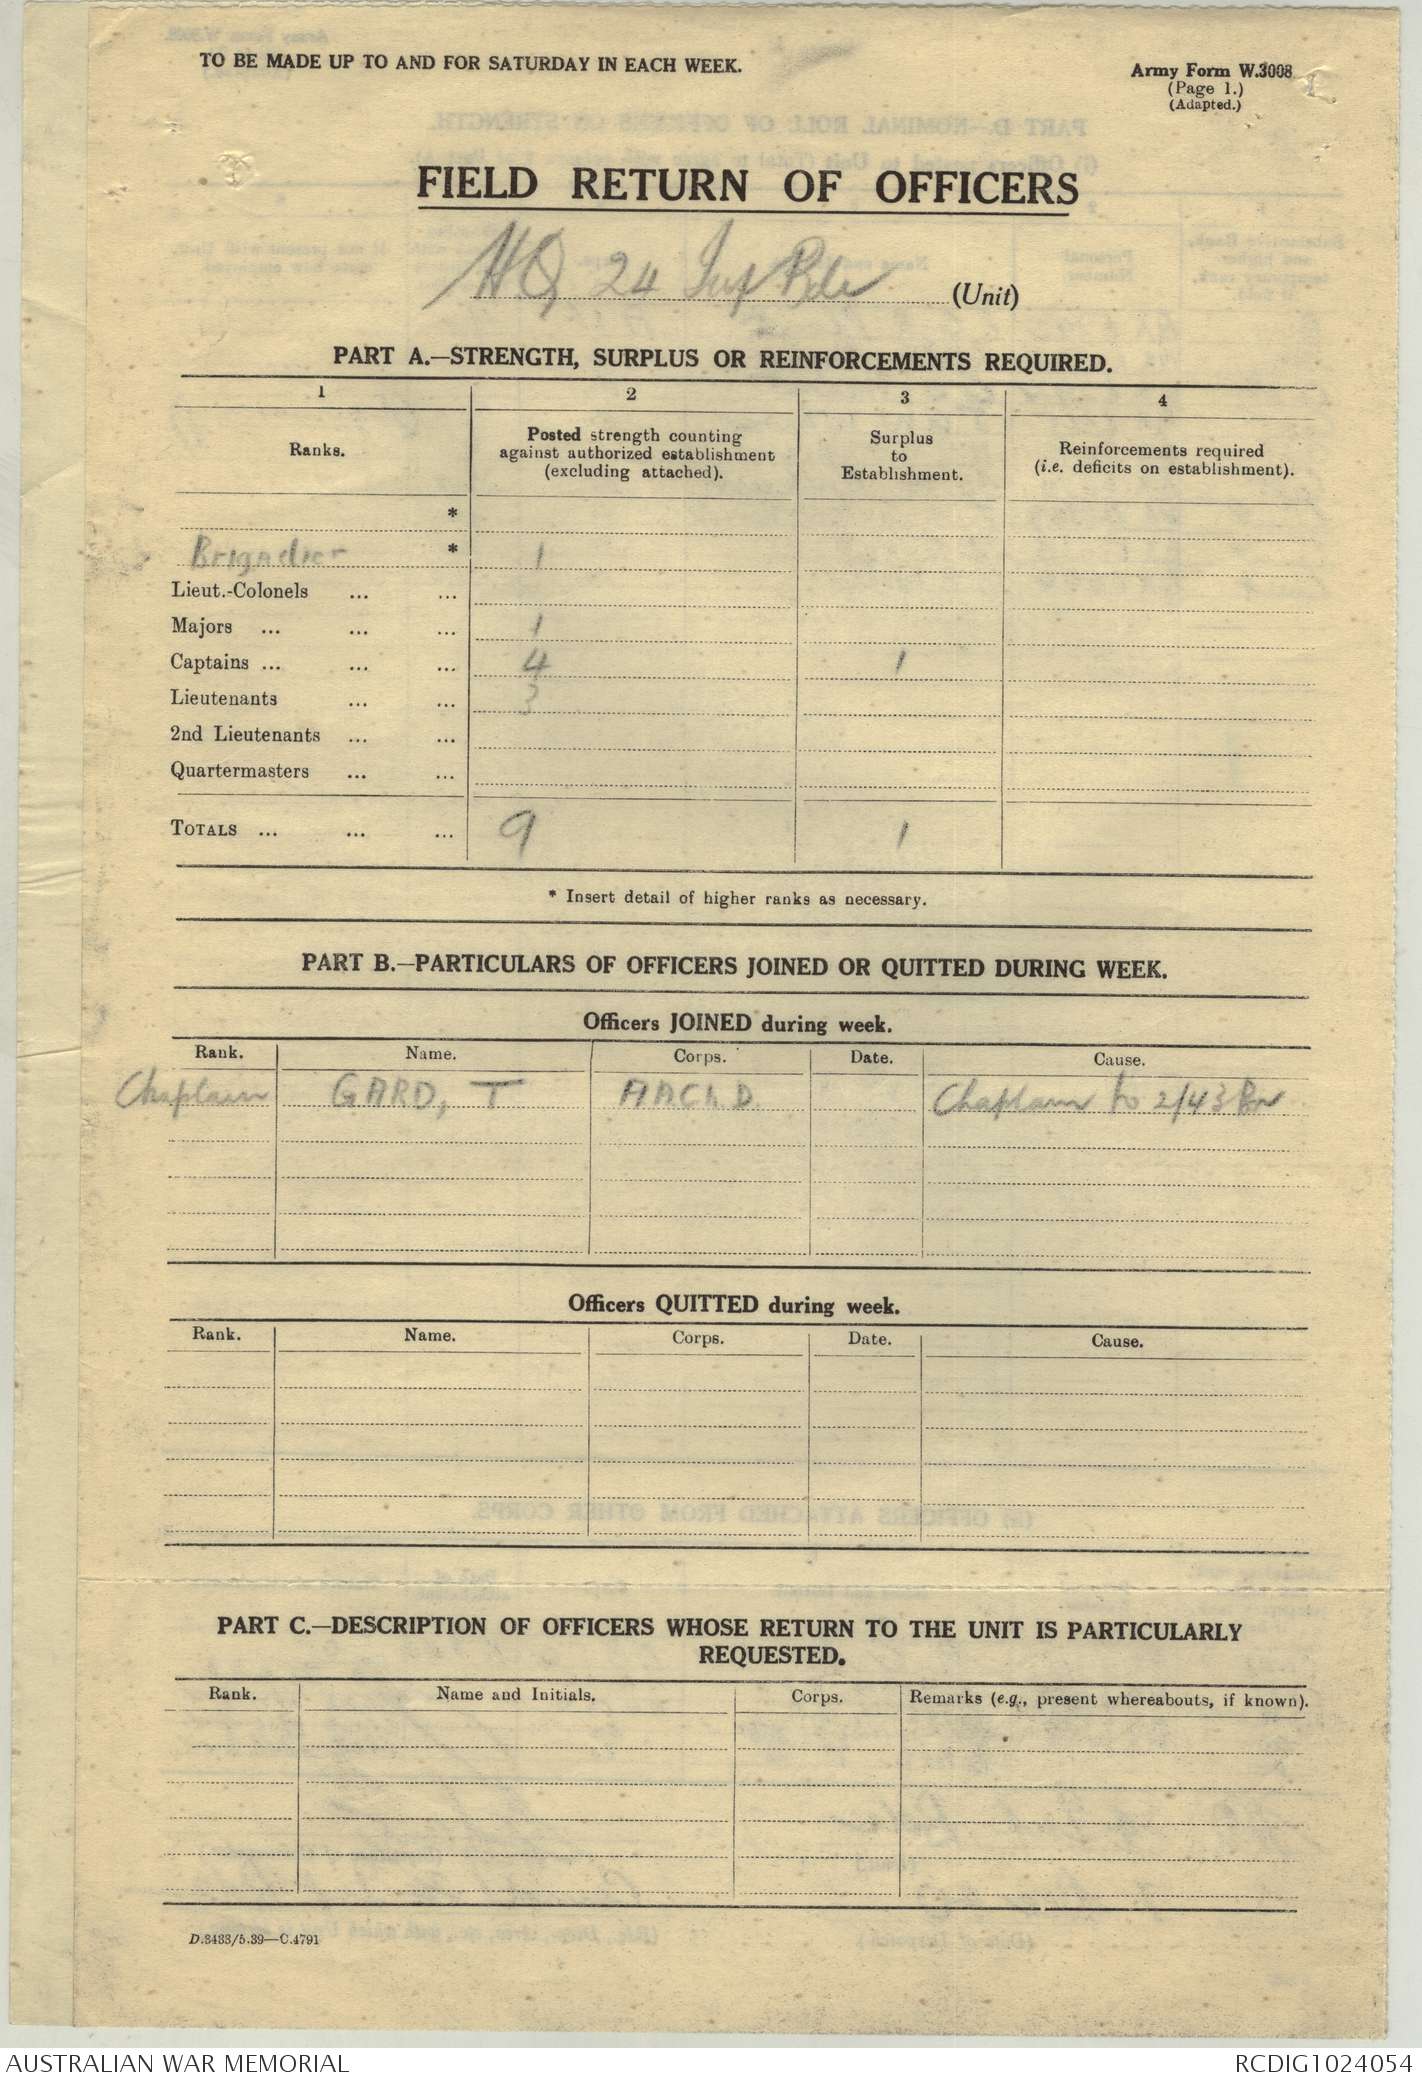 TO BE MADE UP TO AND FOR SATURDAY IN EACH WEEK.
Army Form W.3008
(Page 1.)
(Adapted.)
FIELD RETURN OF OFFICERS
HQ 24 Inf Bde (Unit)
PART A.—STRENGTH, SURPLUS OR REINFORCEMENTS REQUIRED.
1 2 3 4
Ranks. Posted strength counting against authorized establishment (excluding attached). Surplus to Establishment. Reinforcements required (i.e. deficits on establishment).
*
Brigadier * 1
Lieut.-Colonels ... ...
Majors ... ... ... 1
Captains ... ... ... 4 1
Lieutenants ... ... 3
2nd Lieutenants ... ...
Quartermasters ... ...
TOTALS ... ... ... 9 1
* Insert detail of higher ranks as necessary.
PART B.—PARTICULARS OF OFFICERS JOINED OR QUITTED DURING WEEK.
Officers JOINED during week.
Rank. Name. Corps. Date. Cause.
Chaplain GARD, T AACh.D. Chaplain to 2/43 Bn
Officers QUITTED during week.
Rank. Name. Corps. Date. Cause.
PART C.—DESCRIPTION OF OFFICERS WHOSE RETURN TO THE UNIT IS PARTICULARLY
REQUESTED.
Rank. Name and Initials. Corps. Remarks (e.g., present whereabouts, if known).
D.3433/5.39—C.4791
AUSTRALIAN WAR MEMORIAL
RCDIG1024054